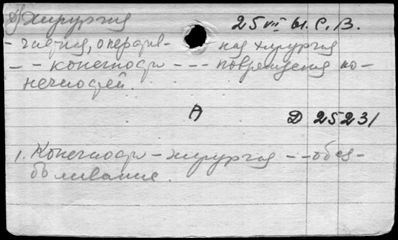 Хирургия 25 VII Ы.С.В.
- частная, оператив- ная хирургия
- - конечности - - - повреждения ко-
нечностей.
А Д 25231
1. Конечности - хирургия - - обез-
боливание.